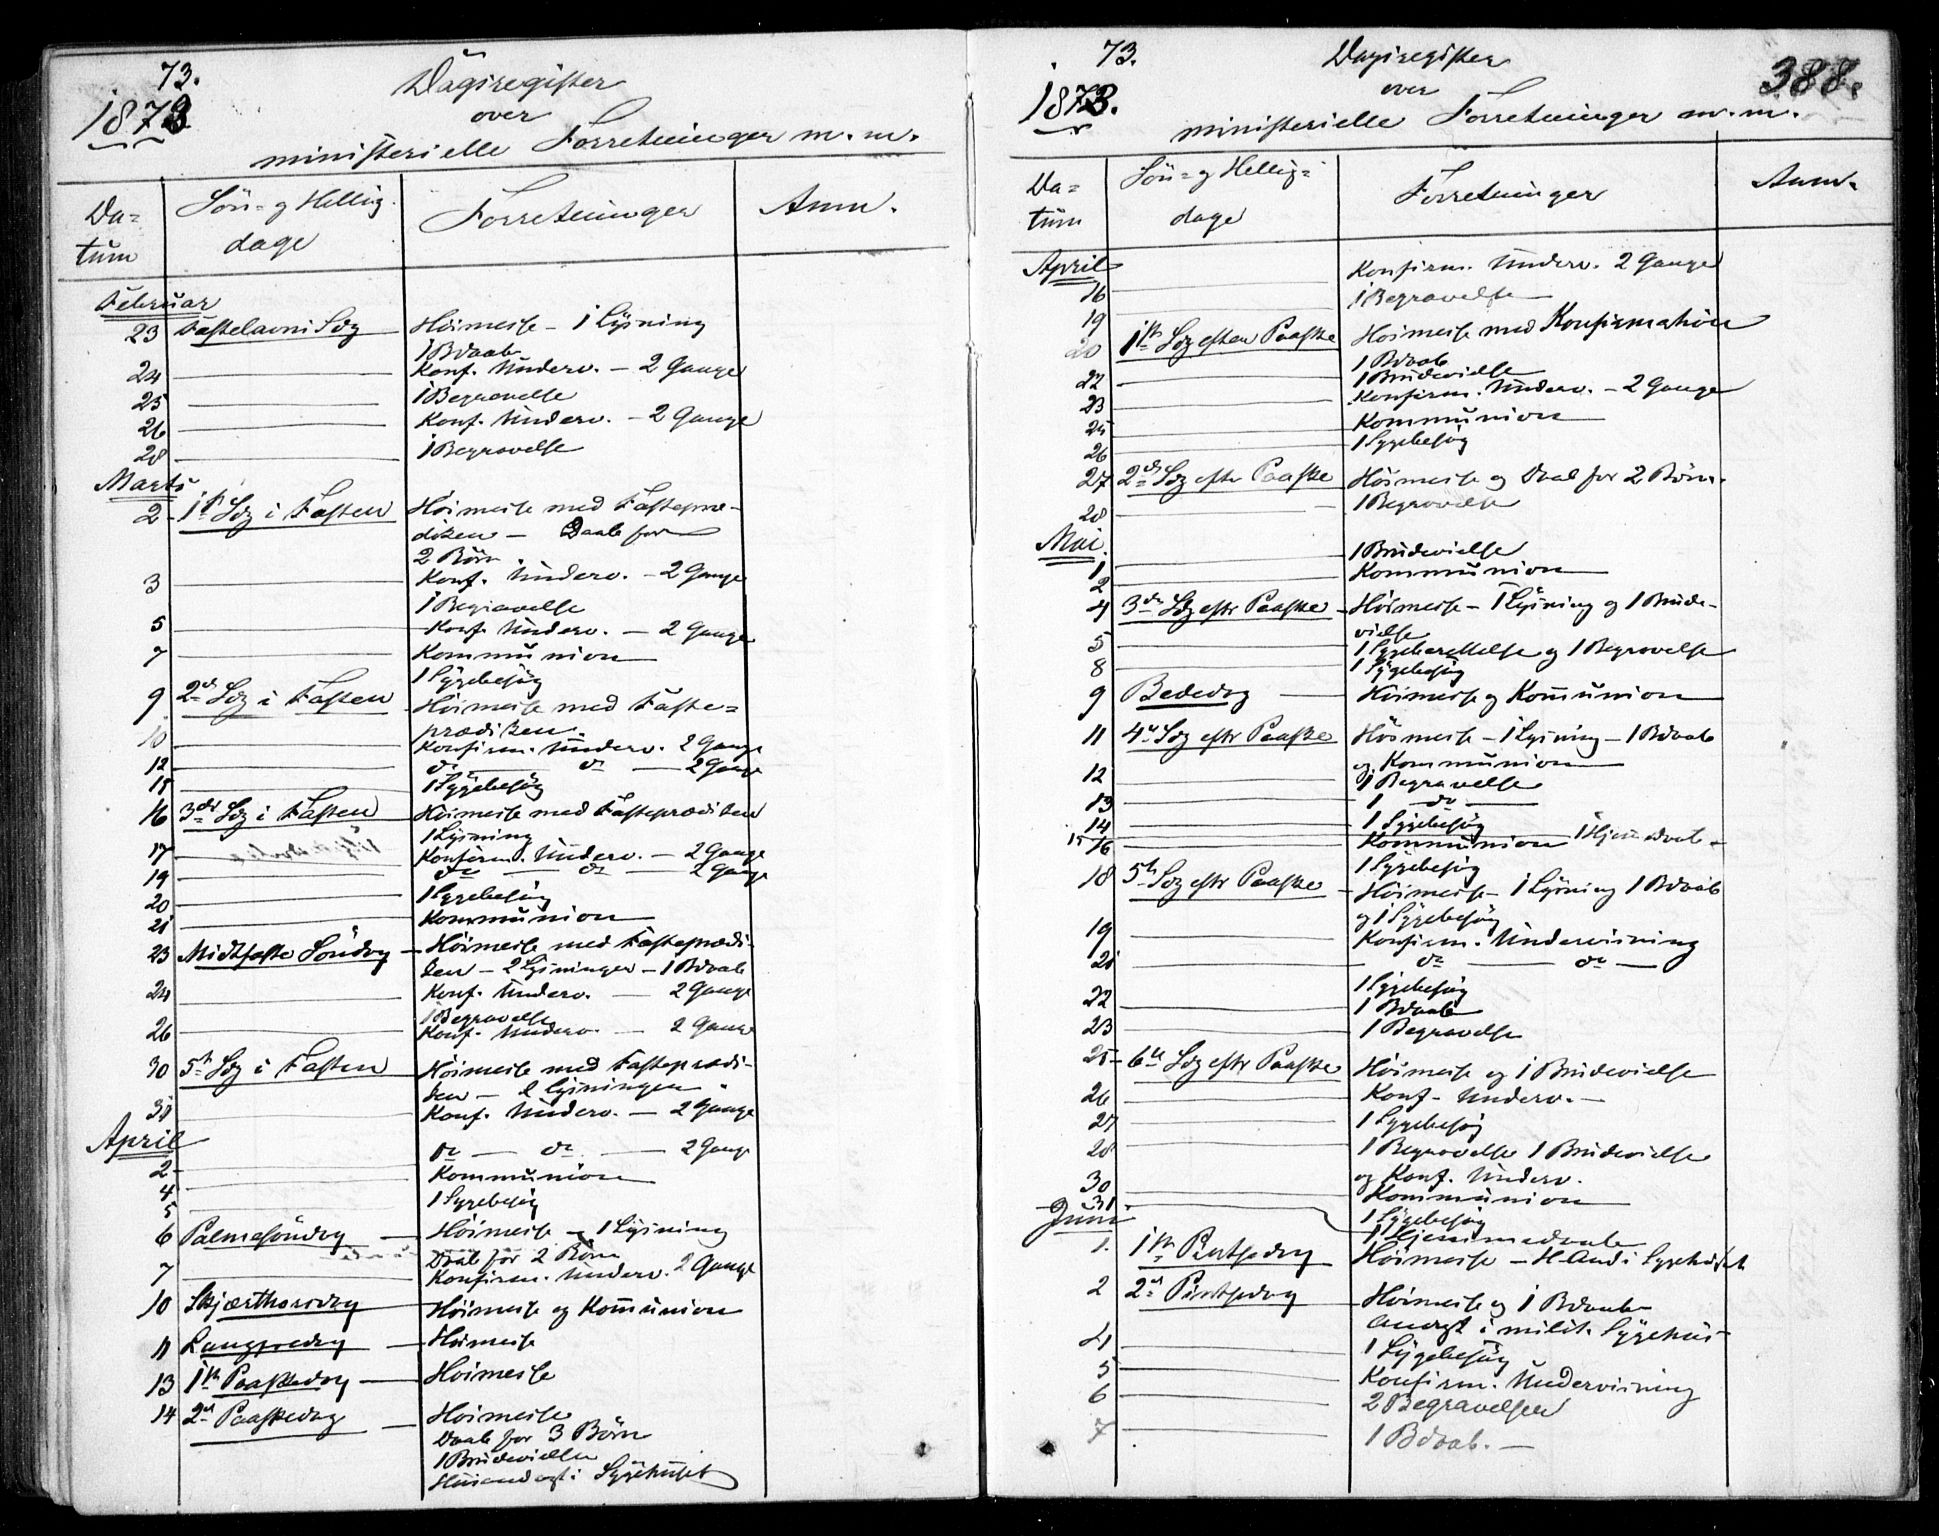 73.
1873
Dagsregister
over
ministerielle Forretninger m.m.
Da-
tum
Søn- og Hellig-
dage
Forretninger
Anm.
Februar
23 Fastelavns Sdg Høimesse - 1 Lysning
1 Bdaab
24 Konf. Underv. - 2 Gange
25 1 Begravelse
26 Konf. Underv. - 2 Gange
28 1 Begravelse
Marts
2 1ste Sdg i Fasten Høimesse med Fastepræ-
diken - Daab for
2 Børn
3 Konf. Underv. - 2 Gange
1 Begravelse
5 Konf. Underv. - 2 Gange
7 Kommunion
1 Sygebesøg
9 2d Sdg i Fasten Høimesse med Faste-
prædiken.
10 Konfirm. Underv. 2 Gange
12 do do - 2 Gange
15 1 Sygebesøg
16 3die Sdg i Fasten Høimesse med Fasteprædiken
1 Lysning
17 Konfirm. Underv. - 2 Gange
19 do - do - 2 Gange
20 1 Sygebesøg
21 Kommunion
23 Midtfaste Søndag - Høimesse med Fasteprædi-
ken - 2 Lysninger - 1 Bdaab
24 Konf. Underv. - 2 Gange
1 Begravelse
26 Konf. Underv. - 2 Gange
30 5te Sdg i Fasten Høimesse med Fasteprædi-
ken - 2 Lysninger
31 Konf. Underv. - 2 Gange
April
2 do - do - 2 Gange
4 Kommunion
5 1 Sygebesøg
6 Palmesøndag - Høimesse - 1 Lysning
Daab for 2 Børn
7 Konfirm. Underv. 2 Gange
10 Skjærthorsdag Høimesse og Kom̄union
11 Langfredag - Høimesse
13 1ste Paaskedag - Høimesse
14 2d Paaskedag - Høimesse
Daab for 3 Børn
1 Brudevielse
Husandagt i Sygehuset
73.
1873.
Dagsregister
over
ministerielle Forretninger m.m.
388.
Da-
tum
Søn- og Hellig-
dage
Forretninger
Anm.
April
Konfirm. Underv. 2 Gange
16 1 Begravelse
19
20 1ste Sdg efter Paaske Høimesse med Konfirmation
1 Bdaab
22 1 Brudevielse
23 Konfirm. Underv. - 2 Gange
25 Kommunion
26 1 Sygebesøg
27 2d Sdg efter Paaske Høimesse og Daab for 2 Børn.
28 - 1 Begravelse
Mai.
1 1 Brudevielse
2 Kommunion
4 3die Sdg eftr Paaske - Høimesse - 1 Lysning og 1 Brude-
vielse
5 1 Sygeberettelse og 1 Begravelse
8 1 Sygebesøg
9 Bededag - Høimesse og Kom̄union
11 4de Sdg eftr Paaske Høimesse - 1 Lysning - 1 Bdaab
og Kommunion
12 1 Begravelse
13 1 do
14 1 Sygebesøg
15 16 Kommunion 1 Hjemmedaab -
1 Sygebesøg
18 5te Sdg eftr Paaske - Høimesse - 1 Lysning 1 Bdaab
og 1 Sygebesøg
19 Konfirm. Undervisning
21 do - do -
1 Sygebesøg
22 1 Bdaab
23 1 Begravelse
25 - 6te Sdg eftr Paaske Høimesse og 1 Brudevielse
26 Konf. Underv. -
27 1 Sygebesøg
28 1 Begravelse 1 Brudevielse
og Konf. Underv.
30 Kommunion
31 1 Sygebesøg
Juni
1 Hjemmedaab
1. 1ste Pintsedag Høimesse - H.And i Sygehuset
2 2d Pintsedag Høimesse og 1 Bdaab
Andagt i milit. Sygehus -
4 1 Sygebesøg
5 Konfirm. Undervisning
6 2 Begravelser
7 1 Bdaab. -